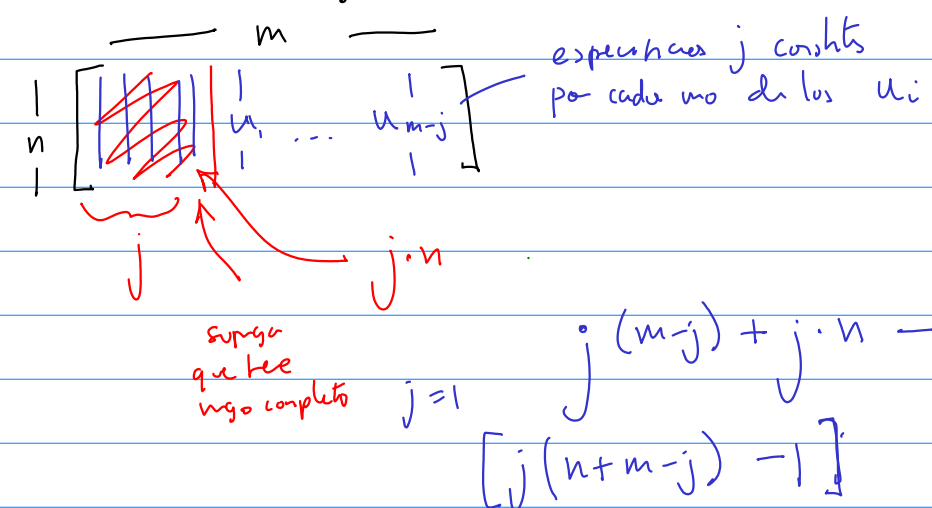 m
n
u₁ ... u m-j
j
j·n
especificamos j constts
por cada uno de los ui
suponga
que tiene
rngo completo
j=1
j(m-j) + j·n —
[j(n+m-j) -1]